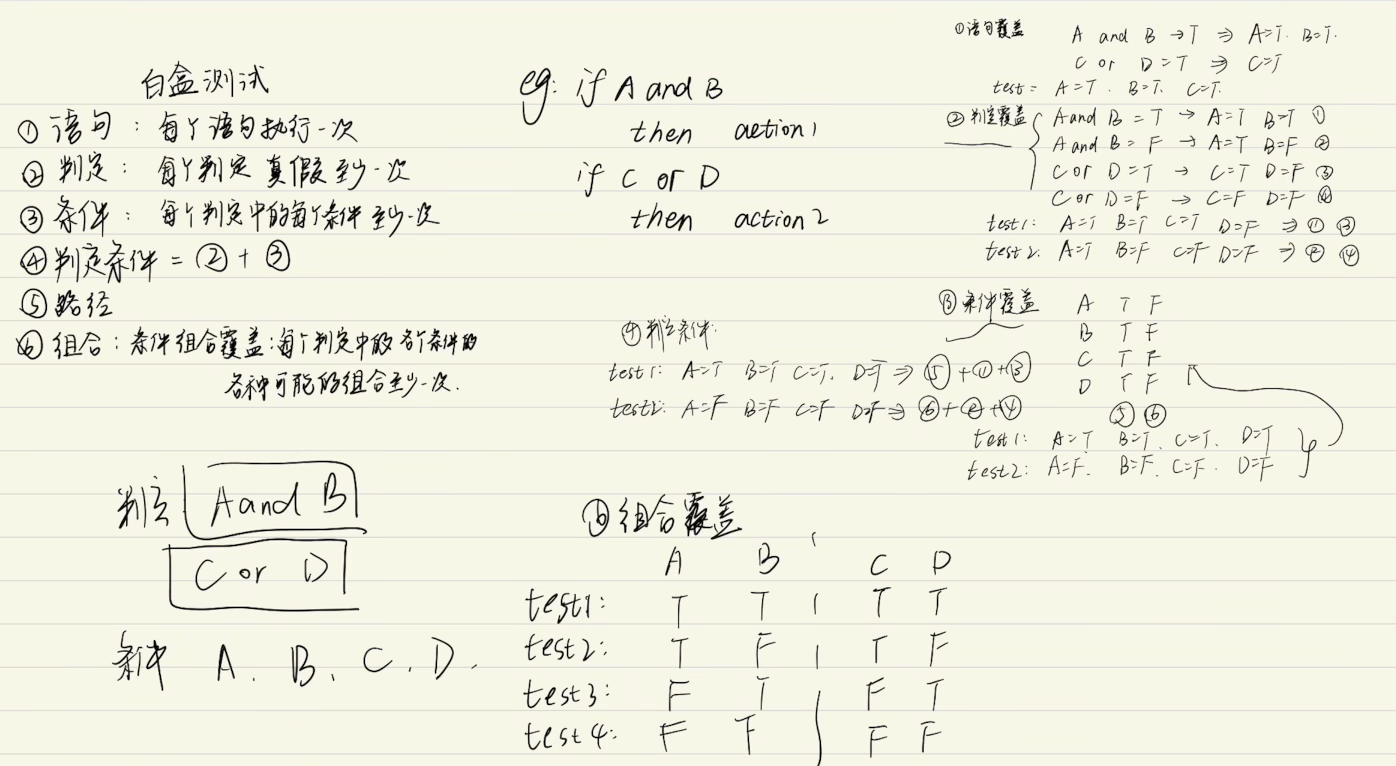 白盒测试
① 语句：每个语句执行一次
② 判定：每个判定 真假至少一次
③ 条件：每个判定中的每个条件至少一次
④ 判定条件 = ② + ③
⑤ 路径
⑥ 组合：条件组合覆盖：每个判定中的各个条件的
各种可能的组合至少一次.
eg: if A and B
then action1
if C or D
then action2
① 语句覆盖 A and B → T ⇒ A=T. B=T.
C or D = T ⇒ C=T
test: A=T. B=T. C=T.
② 判定覆盖 A and B = T → A=T B=T ①
A and B = F → A=T B=F ②
C or D = T → C=T D=F ③
C or D = F → C=F D=F ④
test1: A=T B=T C=T D=F ⇒ ① ③
test2: A=T B=F C=F D=F ⇒ ② ④
③ 条件覆盖 A T F
B T F
C T F
D T F
⑤ ⑥
test1: A=T B=T. C=T. D=T
test2: A=F. B=F. C=F. D=F
④ 判定条件:
test1: A=T B=T C=T. D=T ⇒ ⑤ + ① + ③
test2: A=F B=F C=F D=F ⇒ ⑥ + ② + ④
判定 A and B
C or D
条件 A. B. C. D.
⑥ 组合覆盖
A B C D
test1: T T T T
test2: T F T F
test3: F T F T
test4: F F F F